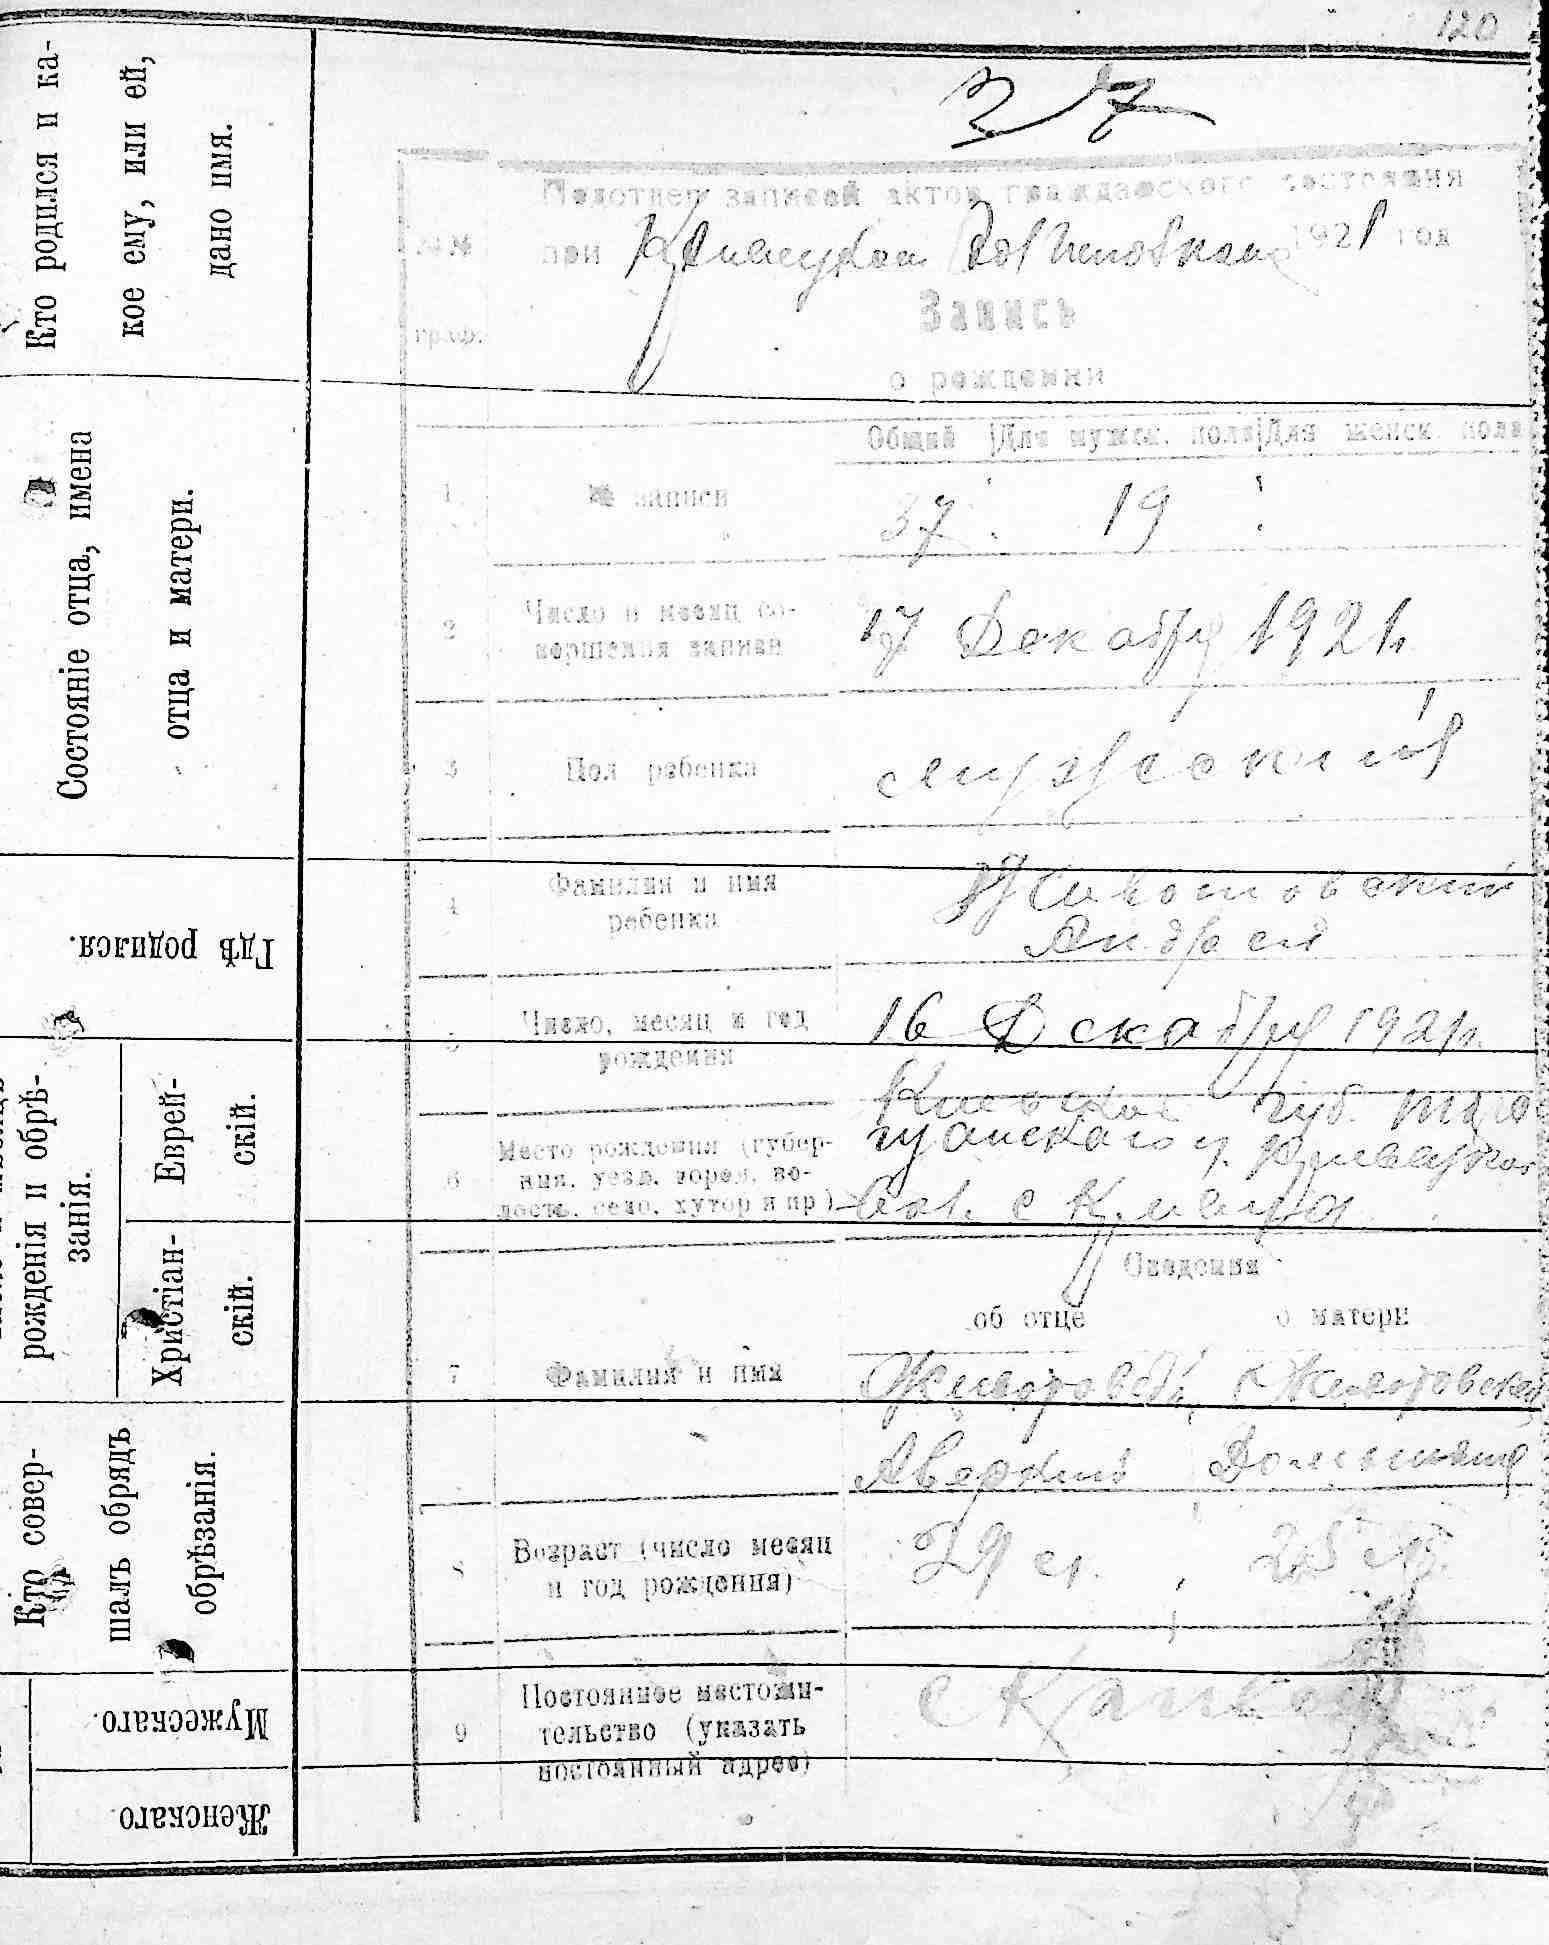 120
37
Кто родился и ка-
кое ему, или ей,
дано имя.
Состояніе отца, имена
отца и матери.
Гдѣ родился.
рожденія и обрѣ-
занія.
Еврей-
скій.
Христіан-
скій.
Кто совер-
шалъ обрядъ
обрѣзанія.
Мужескаго.
Женскаго.
Подотдел записей актов гражданского состояния
№№ при 1921 год
граф.
Запись
о рождении
Общий Для мужск. пола Для женск. пола
1 № записи 37 19
2 Число и месяц со-
вершения записи
17 Декабря 1921 г.
3 Пол ребенка мужеский
4 Фамилия и имя
ребенка
Животовский
Андрей
5 Число, месяц и год
рождения
16 Декабря 1921 г.
6 Место рождения (губер-
ния, уезд, город, во-
лость, село, хутор и пр)
Киевской губ.
вол. с
Сведения
об отце о матери
7 Фамилия и имя Животовский Животовская
Аверкий
8 Возраст (число месяц
и год рождения)
29 л. 25 л.
9 Постоянное местожи-
тельство (указать
постоянный адрес)
с